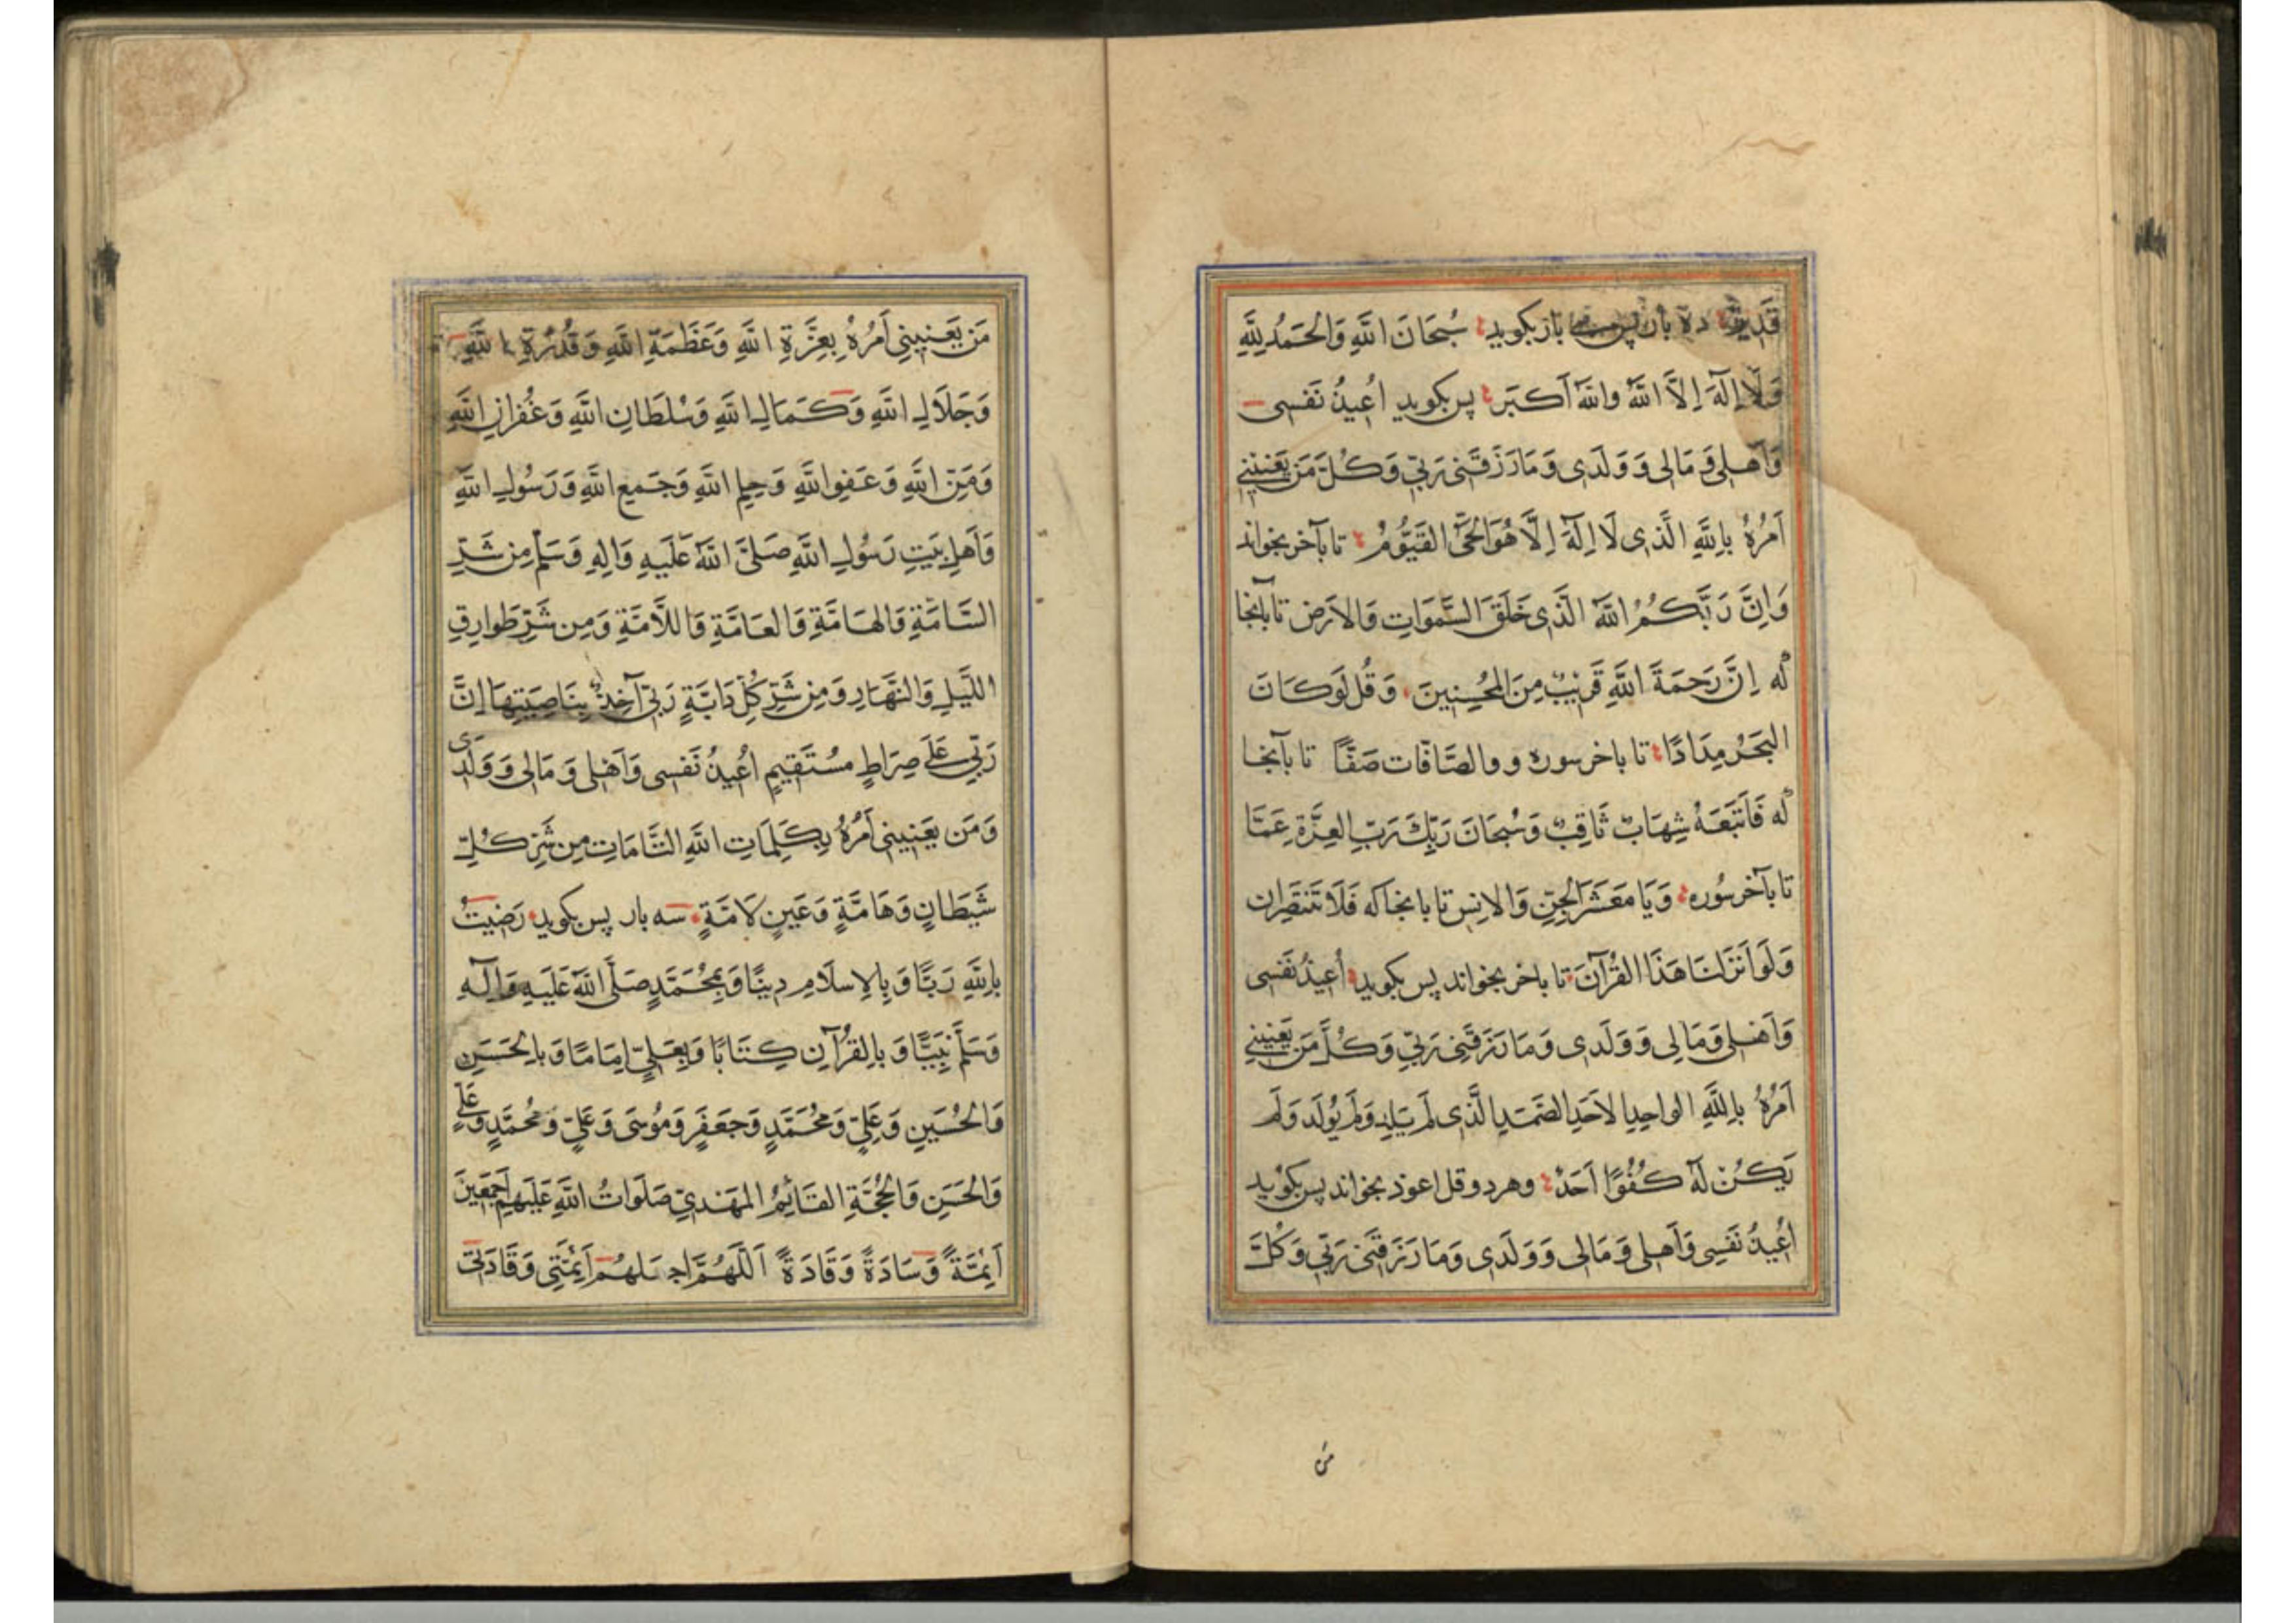 قَدِيرٌ ده بار پس بار بكويد سُبْحَانَ اللَّهِ وَالْحَمْدُ لِلَّهِ
وَلَا إِلَهَ إِلَّا اللَّهُ وَاللَّهُ أَكْبَر پس بكويد اُعِيذُ نَفْسِى
وَاَهْلِى وَمَالِى وَوَلَدِى وَمَا رَزَقَنِى رَبِّى وَكُلَّ مَنْ يَعْنِينِى
اَمْرُهُ بِاللَّهِ الَّذِى لَا اِلَهَ اِلَّا هُوَ الْحَىُّ الْقَيُّومُ تا بآخر بخواند
وَاِنَّ رَبَّكُمُ اللَّهُ الَّذِى خَلَقَ السَّمَوَاتِ وَالْاَرْضَ تا بآنجا
كه اِنَّ رَحْمَةَ اللَّهِ قَرِيبٌ مِنَ الْمُحْسِنِينَ وَقُل لَوْ كَانَ
الْبَحْرُ مِدَادًا تا باخر سوره و والصَّافَّات صَفًّا تا بآنجا
كه فَاَتْبَعَهُ شِهَابٌ ثَاقِبٌ وَسُبْحَانَ رَبِّكَ رَبِّ الْعِزَّةِ عَمَّا
تا بآخر سُوره وَيَا مَعْشَرَ الْجِنِّ وَالْاِنْسِ تا بانجا كه فَلَا تَنْتَصِرَان
وَلَوْ اَنْزَلْنَا هَذَا الْقُرْآنَ تا باخر بخواند پس بكويد اُعِيذُ نَفْسِى
وَاَهْلِى وَمَالِى وَوَلَدِى وَمَا رَزَقَنِى رَبِّى وَكُلَّ مَنْ يَعْنِينِى
اَمْرُهُ بِاللَّهِ الْوَاحِدِ الْاَحَدِ الصَّمَدِ الَّذِى لَمْ يَلِدْ وَلَمْ يُولَدْ وَلَمْ
يَكُنْ لَهُ كُفُوًا اَحَدٌ وهر دو قل اعوذ بخواند پس بكويد
اُعِيذُ نَفْسِى وَاَهْلِى وَمَالِى وَوَلَدِى وَمَا رَزَقَنِى رَبِّى وَكُلَّ
مَن
مَنْ يَعْنِينِى اَمْرُهُ بِعِزَّةِ اللَّهِ وَعَظَمَةِ اللَّهِ وَقُدْرَةِ اللَّهِ
وَجَلَالِ اللَّهِ وَكَمَالِ اللَّهِ وَسُلْطَانِ اللَّهِ وَغُفْرَانِ اللَّهِ
وَمَنِّ اللَّهِ وَعَفْوِ اللَّهِ وَحِلْمِ اللَّهِ وَجَمْعِ اللَّهِ وَرَسُولِ اللَّهِ
وَاَهْلِ بَيْتِ رَسُولِ اللَّهِ صَلَّى اللَّهُ عَلَيْهِ وَالِهِ وَسَلَّمَ مِنْ شَرِّ
السَّامَّةِ وَالْهَامَّةِ وَالْعَامَّةِ وَاللَّامَّةِ وَمِنْ شَرِّ طَوَارِقِ
اللَّيْلِ وَالنَّهَارِ وَمِنْ شَرِّ كُلِّ دَابَّةٍ رَبِّى آخِذٌ بِنَاصِيَتِهَا اِنَّ
رَبِّى عَلَى صِرَاطٍ مُسْتَقِيمٍ اُعِيذُ نَفْسِى وَاَهْلِى وَمَالِى وَوَلَدِى
وَمَنْ يَعْنِينِى اَمْرُهُ بِكَلِمَاتِ اللَّهِ التَّامَّاتِ مِنْ شَرِّ كُلِّ
شَيْطَانٍ وَهَامَّةٍ وَعَيْنٍ لَامَّةٍ سه بار پس بكويد رَضِيتُ
بِاللَّهِ رَبًّا وَبِالْاِسْلَامِ دِينًا وَبِمُحَمَّدٍ صَلَّى اللَّهُ عَلَيْهِ وَآلِهِ
وَسَلَّمَ نَبِيًّا وَبِالْقُرْآنِ كِتَابًا وَبِعَلِىٍّ اِمَامًا وَبِالْحَسَنِ
وَالْحُسَيْنِ وَعَلِىٍّ وَمُحَمَّدٍ وَجَعْفَرٍ وَمُوسَى وَعَلِىٍّ وَمُحَمَّدٍ وَعَلِىٍّ
وَالْحَسَنِ وَالْحُجَّةِ الْقَائِمِ الْمَهْدِىِّ صَلَوَاتُ اللَّهِ عَلَيْهِمْ اَجْمَعِينَ
اَئِمَّةً وَسَادَةً وَقَادَةً اَللَّهُمَّ اجْعَلْهُمْ اَئِمَّتِى وَقَادَتِى